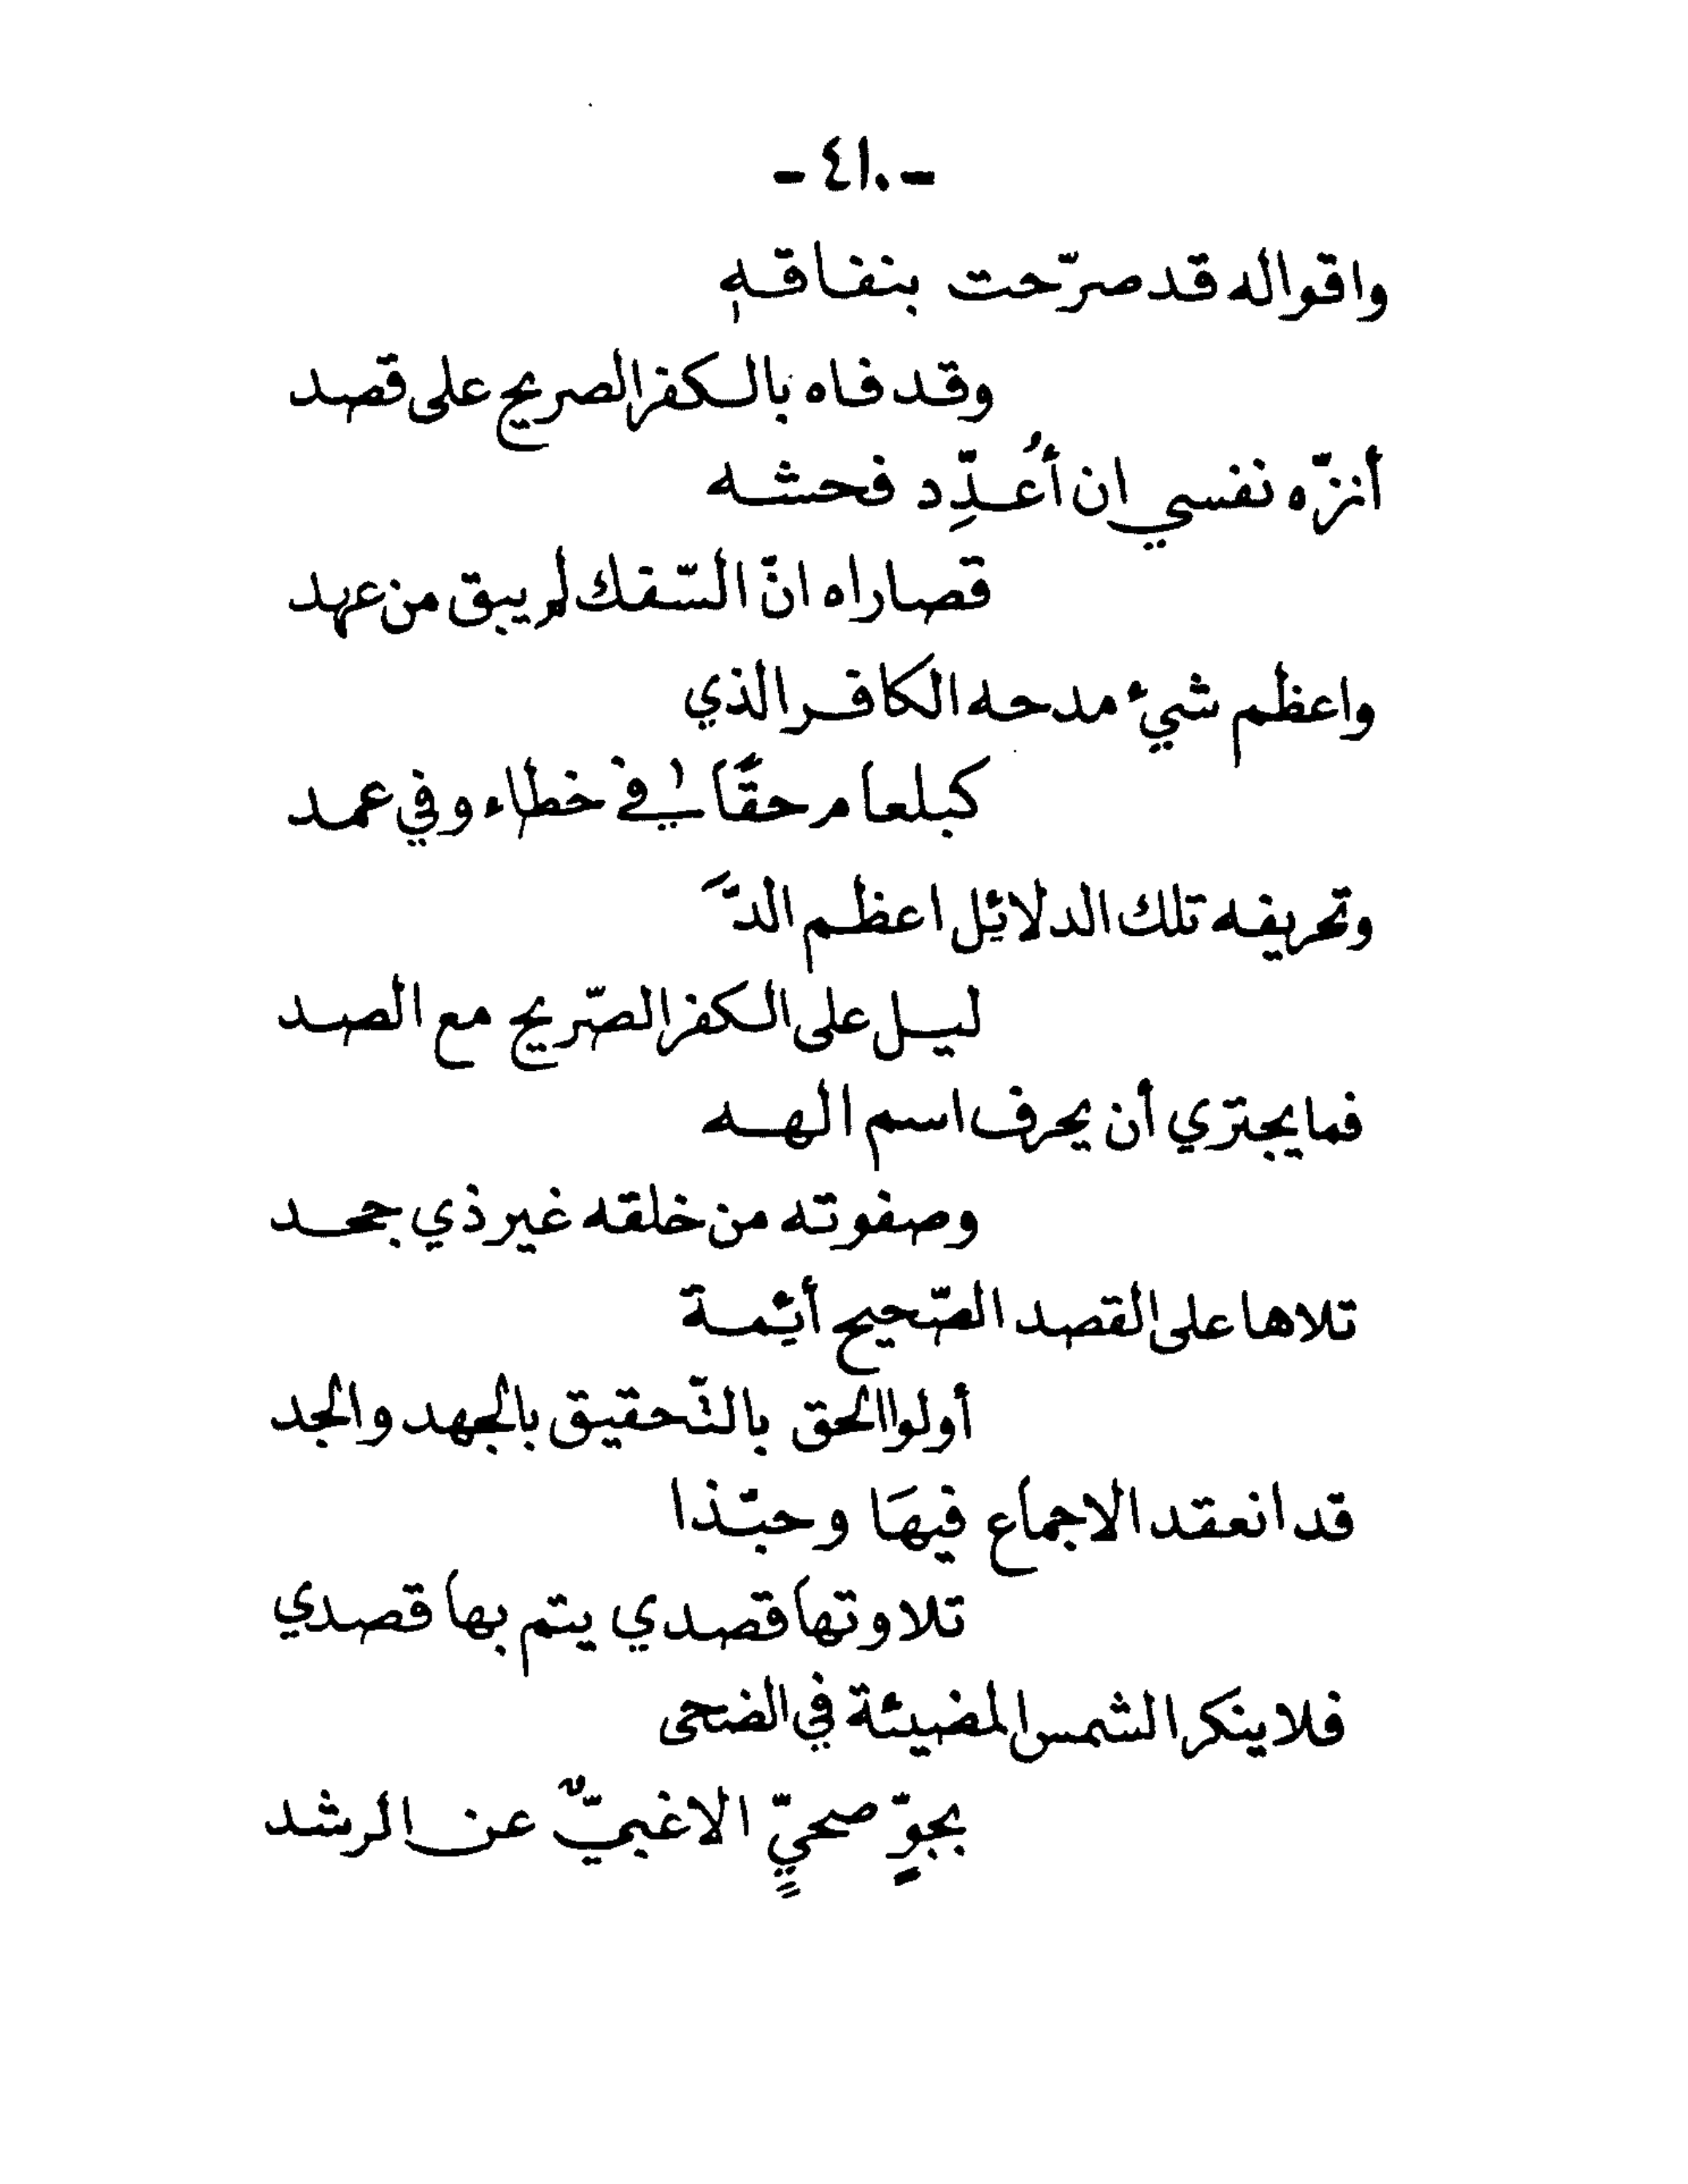 - ٤١٠ -
واقواله قد صرّحت بنفاقهٖ
وقد فاه بالكفر الصريح على قصد
أنزّه نفسي ان أُعدِّد فحشه
قصاراه انّ السّفك لم يبق من عهد
واعظم شيء مدحه الكافر الذي
كبلعام حقًا في خطاء وفي عمد
وتحريفه تلك الدلائل اعظم الدَّ
ليل على الكفر الصّريح مع الصد
فما يجتري أن يحرف اسم الهه
وصفوته من خلقه غير ذي جحد
تلاها على القصد الصّحيح أئمة
أولوا الحق بالتّحقيق بالجهد والجد
قد انعقد الاجماع فيهَا وحبّذا
تلاوتها قصدي يتم بها قصدي
فلا ينكر الشمس المضيئة في الضحى
بجوٍّ صحيٍّ الاغبيٌّ عن الرشد